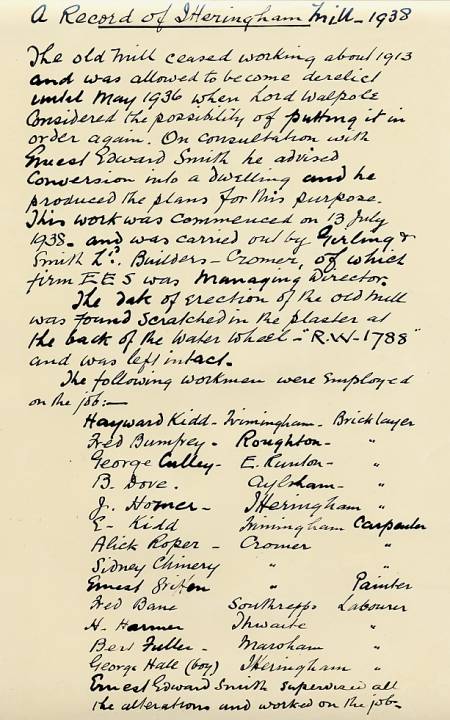 A Record of ITeringham Mill - 1938
The old Mill ceased working about 1913
and was allowed to become derelict
until May 1936 when Lord Walpole
Considered the possibility of putting it in
order again. On consultation with
Ernest Edward Smith he advised
Conversion into a dwelling and he
produced the plans for this purpose.
This work was commenced on 13 July
1938 - and was carried out by Girling &
Smith Ltd. Builders - Cromer, of which
firm E E S was Managing Director.
The Date of Erection of the old Mill
was found Scratched in the plaster at
the back of the Water Wheel - "R.W - 1788"
and was left intact.
The following workmen were Employed
on the job:-
Hayward Kidd - Irmingham - Bricklayer
Fred Bumfrey - Roughton - "
George Culley - E. Runton - "
B. Dove. Aylsham - "
J. Homer - ITeringham "
E - Kidd Irmingham Carpenter
Alick Roper - Cromer "
Sidney Chinery " "
Ernest " Painter
Fred Bane Southrepps Labourer
H. Harmer Thwaite "
Bert Fuller - Marsham "
George Hall (boy) ITeringham "
Ernest Edward Smith supervised all
the alterations and worked on the job.